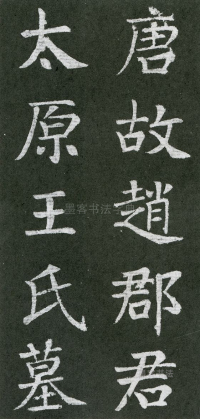 唐故趙郡君
太原王氏墓
墨客书法字典